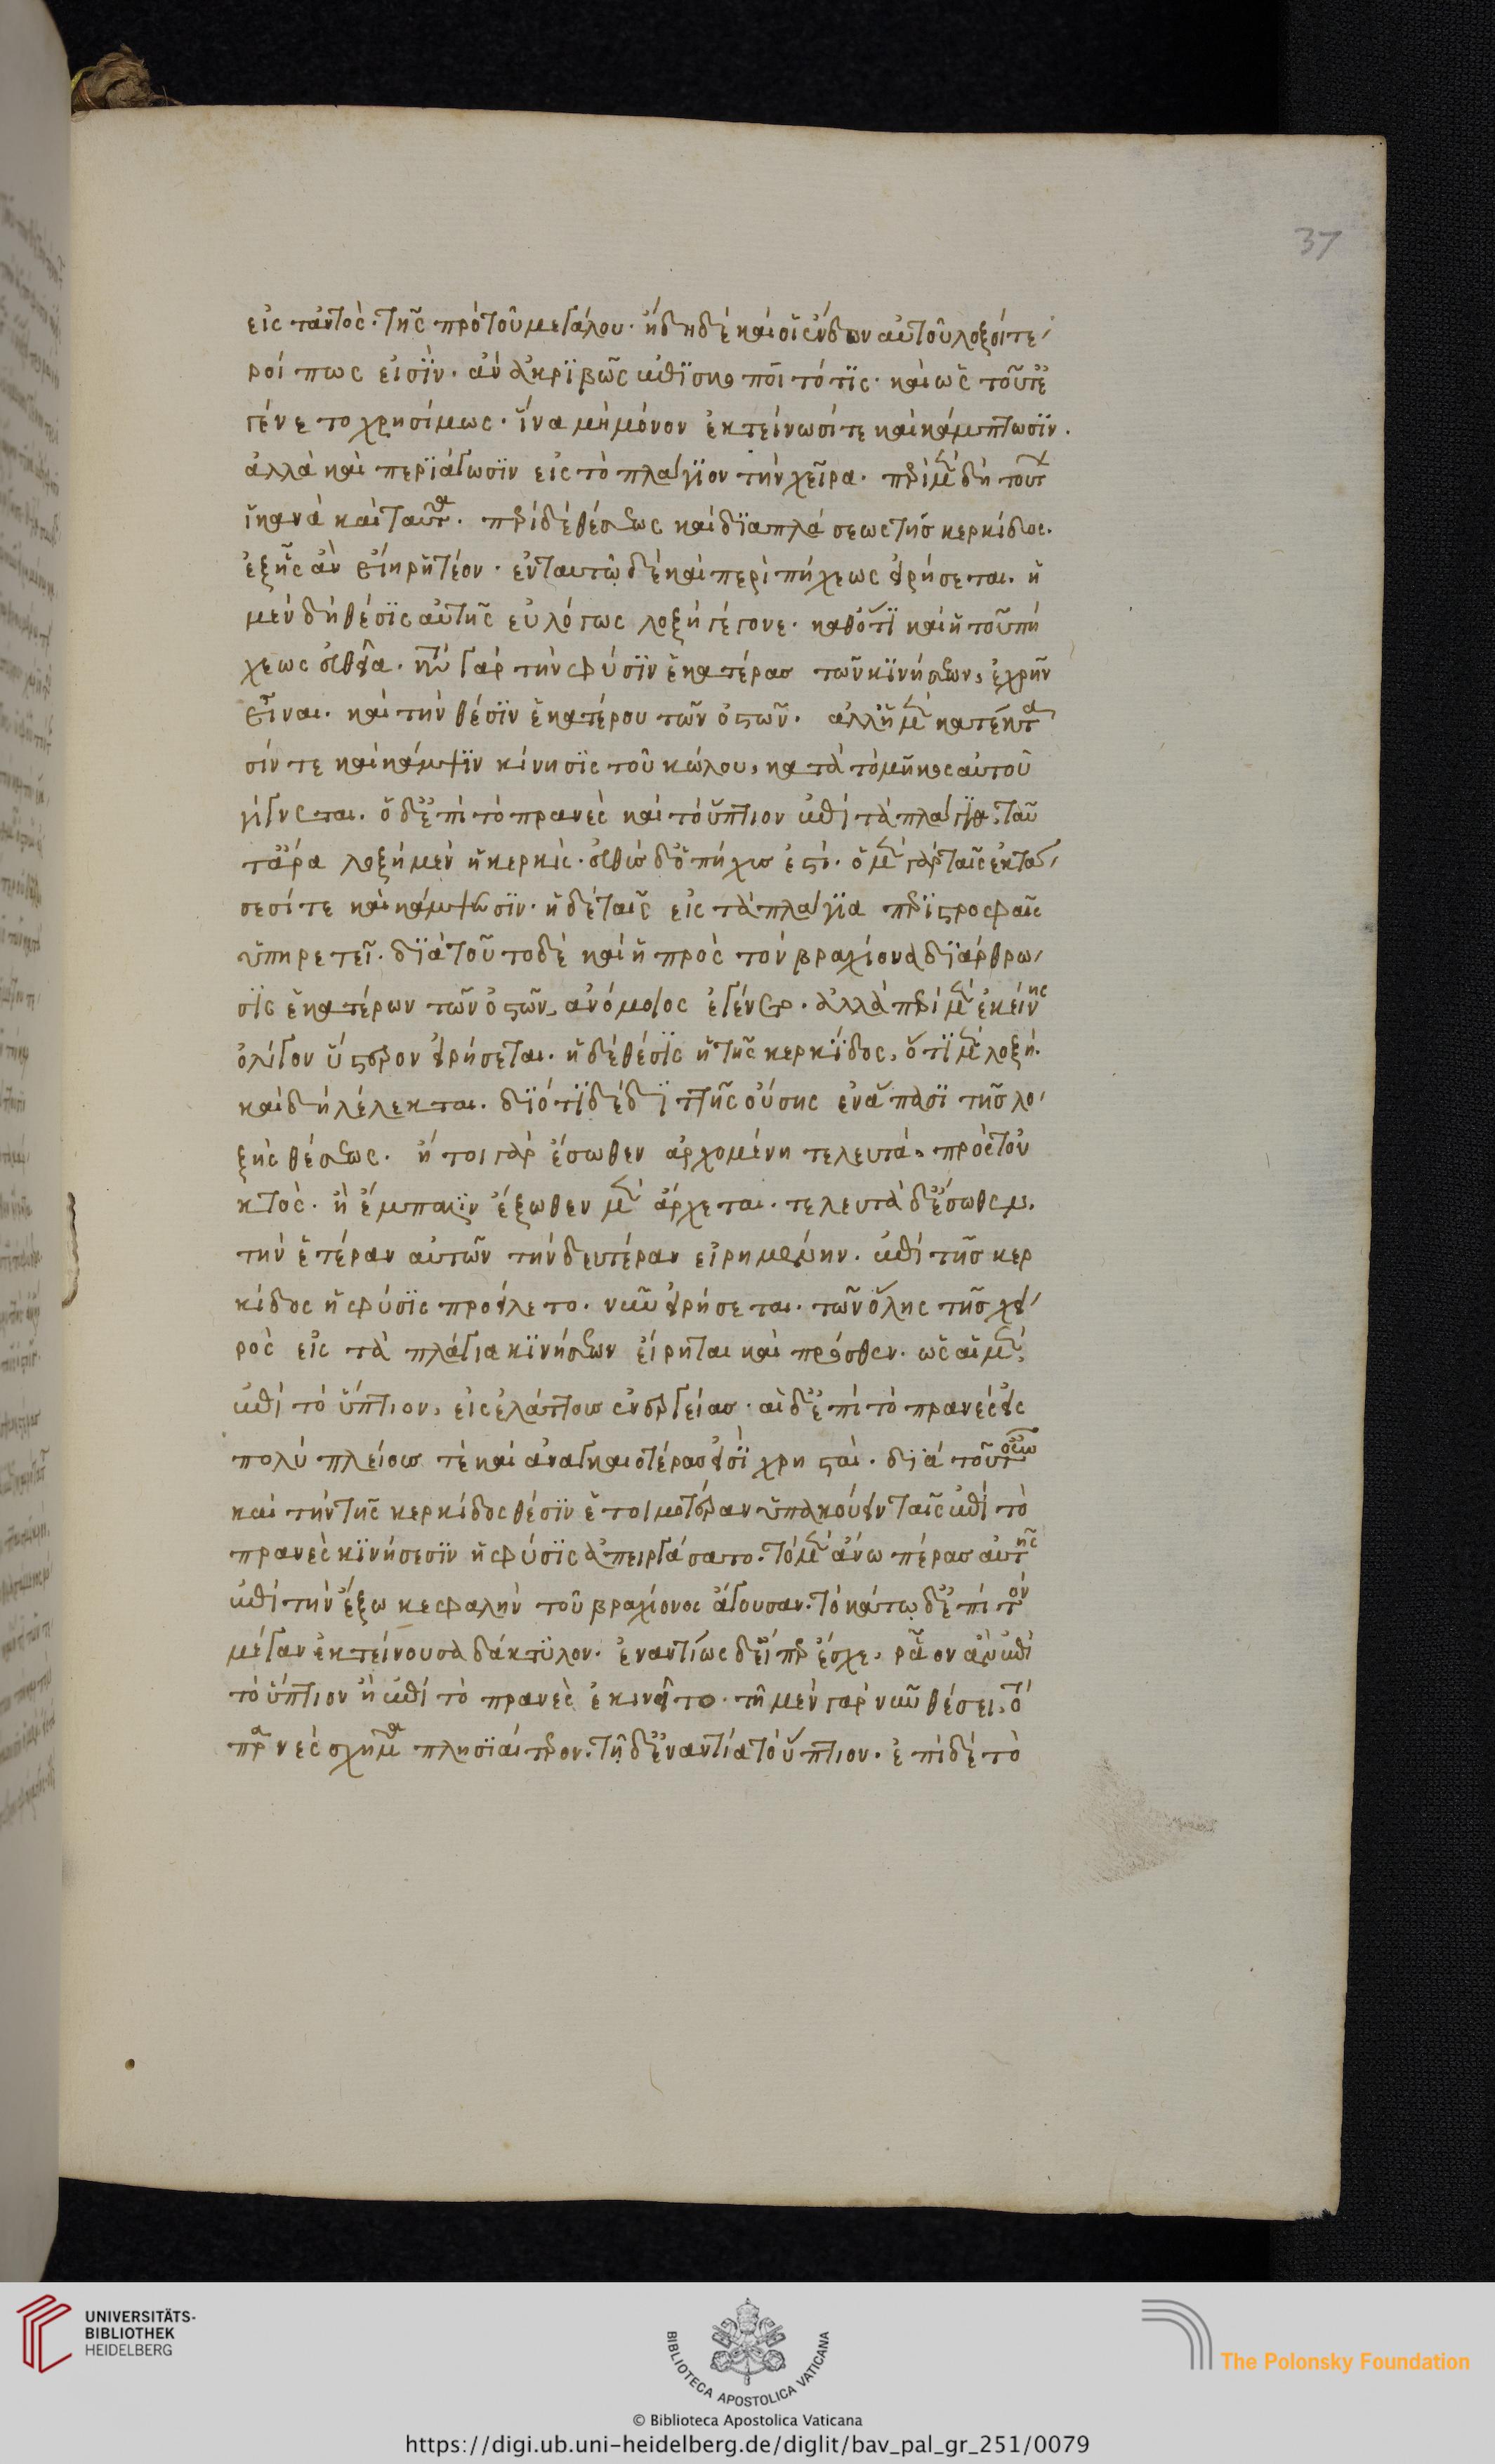 37
εἰς τἀντὸς τῆς πρὸ τοῦ μεγάλου. ἤδη δὲ καὶ οἱ ἔνδον αὐτοῦ λοξότε
ροί πως εἰσὶν. ἀν ἀκριβῶς ἐπισκοποῖτό τις. καὶ ὡς τοῦτ ἐ
γένετο χρησίμως. ἵνα μὴ μόνον ἐκτείνωσί τε καὶ κάμπτωσιν.
ἀλλὰ καὶ περιάγωσιν εἰς τὸ πλάγιον τὴν χεῖρα. περὶ μὲν δὴ τούτων
ἱκανὰ καὶ ταῦτα. περὶ δὲ θέσεως καὶ διαπλάσεως τῆς κερκίδος.
ἑξῆς ἂν εἴη ῥητέον. ἐν ταυτῷ δὲ καὶ περὶ πήχεως εἰρήσεται. ἡ
μὲν δὴ θέσις αὐτῆς εὐλόγως λοξὴ γέγονε. καθότι καὶ ἡ τοῦ πή
χεως εὐθεῖα. κατὰ γὰρ τὴν φύσιν ἑκατέρας τῶν κινήσεων, ἐχρῆν
εἶναι. καὶ τὴν θέσιν ἑκατέρου τῶν ὀστῶν. ἀλλ' ἡ μὲν κατ' ἔκτα
σίν τε καὶ κάμψιν κίνησις τοῦ κώλου, κατὰ τὸ μῆκος αὐτοῦ
γίγνεται. ἡ δ' ἐπὶ τὸ πρανὲς καὶ τὸ ὕπτιον ἐπὶ τὰ πλάγια. ταῦ
τ' ἄρα λοξὴ μὲν ἡ κερκὶς. εὐθὺς δ' ὁ πῆχυς ἐστί. ὁ μὲν γὰρ ταῖς ἐκτά
σεσί τε καὶ κάμψεσιν. ἡ δὲ ταῖς εἰς τὰ πλάγια περιστροφαῖς
ὑπηρετεῖ. διὰ τοῦτο δὲ καὶ ἡ πρὸς τὸν βραχίονα διάρθρω
σις ἑκατέρων τῶν ὀστῶν, ἀνόμοιος ἐγένετο. ἀλλὰ περὶ μὲν ἐκείνης
ὀλίγον ὕστερον εἰρήσεται. ἡ δὲ θέσις ἡ τῆς κερκίδος, ὅτι μὲν λοξὴ.
καὶ δὴ λέλεκται. διότι δὲ διττῆς οὔσης ἐν ἅπασι τῆς λο
ξῆς θέσεως. ἤτοι γὰρ ἔσωθεν ἀρχομένη τελευτᾷ πρὸς τοὐ
κτὸς. ἢ ἔμπαλιν ἔξωθεν μὲν ἄρχεται. τελευτᾷ δ' ἔσωθεν.
τὴν ἑτέραν αὐτῶν τὴν δευτέραν εἰρημένην. ἐπὶ τῆς κερ
κίδος ἡ φύσις προείλετο. νῦν εἰρήσεται. τῶν ὅλης τῆς χει
ρὸς εἰς τὰ πλάγια κινήσεων εἴρηται καὶ πρόσθεν. ὡς αἱ μὲν
ἐπὶ τὸ ὕπτιον, εἰς ἐλάττους ἐνεργείας. αἱ δ' ἐπὶ τὸ πρανὲς εἰς
πολὺ πλείους τὲ καὶ ἀναγκαιοτέρας εἰσὶ χρησταί. διὰ τοῦτο οὖν
καὶ τὴν τῆς κερκίδος θέσιν ἑτοιμοτέραν ὑπακούειν ταῖς ἐπὶ τὸ
πρανὲς κινήσεσιν ἡ φύσις ἀπειργάσατο. τὸ μὲν ἄνω πέρας αὐτῆς
ἐπὶ τὴν ἔξω κεφαλὴν τοῦ βραχίονος ἄγουσαν. τὸ κάτω δ' ἐπὶ τὸν
μέγαν ἐκτείνουσα δάκτυλον. ἐναντίως δ' εἴπερ ἔσχε, ῥᾷον ἂν ἐπὶ
τὸ ὕπτιον ἢ ἐπὶ τὸ πρανὲς ἐκινεῖτο. τῇ μὲν γὰρ νῦν θέσει, τὸ
πρανὲς σχῆμα πλησιαίτερον. τῇ δ' ἐναντίᾳ τὸ ὕπτιον. ἐπὶ δὲ τὸ
UNIVERSITÄTS-
BIBLIOTHEK
HEIDELBERG
BIBLIOTECA APOSTOLICA VATICANA
The Polonsky Foundation
© Biblioteca Apostolica Vaticana
https://digi.ub.uni-heidelberg.de/diglit/bav_pal_gr_251/0079